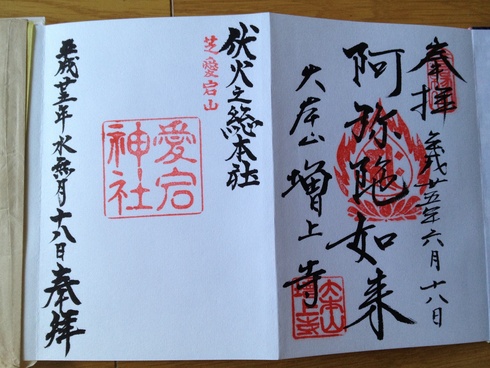 奉拝
平成廿五年六月十八日
阿弥陀如来
大本山 増上寺
大本山
増上寺
伏火之総本社
芝愛宕山
愛宕
神社
平成廿五年水無月十八日 奉拝